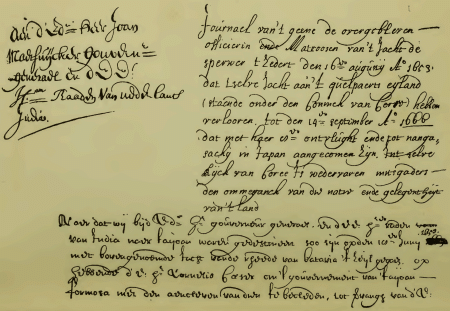 Aen d'Ed: Heer Joan
Maetsuijcker Gouvern:
Generael en d'E E:
Heeren Raaden van nederlants
Indie.
Journael van't geene de overgebleven
officieren ende Matroosen van't Jacht de
sperwer t'zedert den 16en augustij Ao 1653.
dat tselve Jacht aan't quelpaerts eyland
(staende onder den Coninck van Coree) hebben
verlooren, tot den 14en september Ao 1666
dat met haer 8en ontvlught ende tot nanga,
sackij in Japan aangecomen zijn, int selve
Rijck van Coree is wedervaren mitsgaders
den ommeganck van die natie ende gelegentheijt
van't land
Naer dat wij bij d'Ed: Hr gouverneur generael, en d'e e: hren raden
van India naer taijoan waren gedestineert soo zijn op den 18en Junij 1653
met bovengenoemde Jacht vande rheede van batavia t'zeijl gegaen, op
hebbende d'E: Hr Cornelis Caeser om't gouvernement van taijoan
formosa met den aencleven van dien te becleden, tot vervangh van d'Ed: